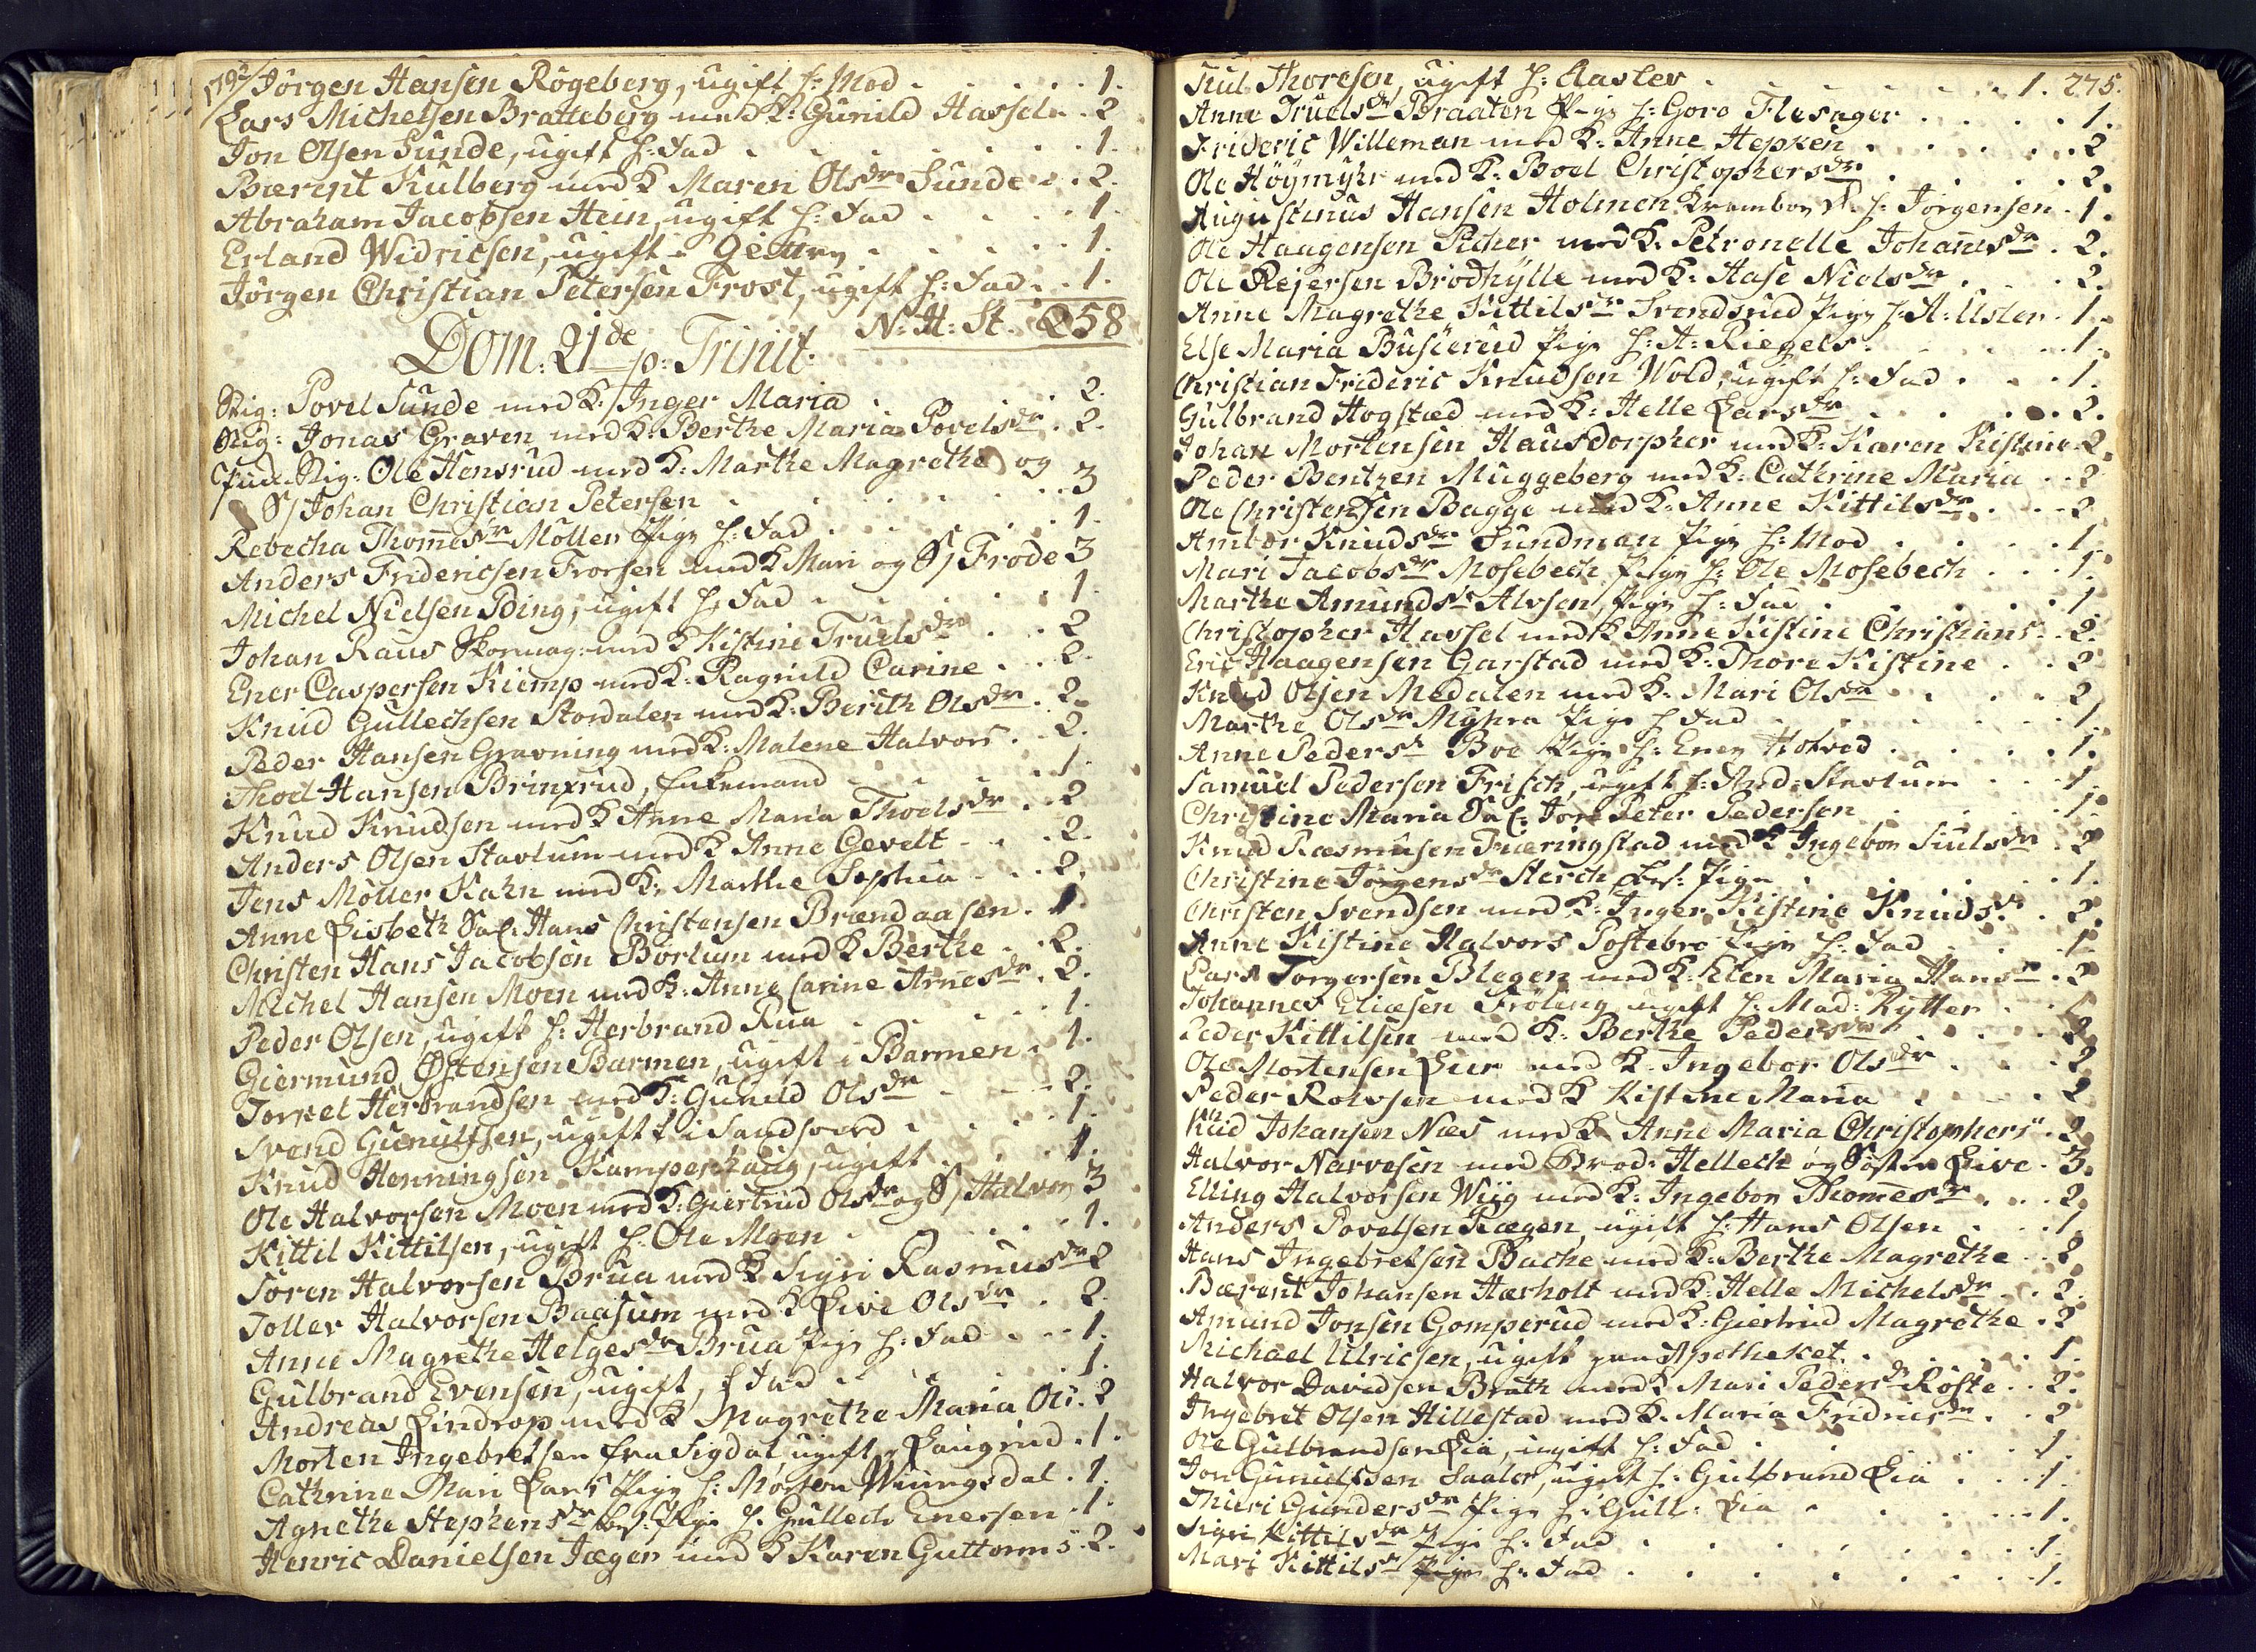 1792/ Jörgen Hansen Rögeberg, ugift h: Mod . . . . . 1.
Lars Michelsen Bratteberg med K: Gunild Hassel . . 2
Jon Olsen Sunde, ugift h: Fad . . . . . . 1.
Bærent Kulberg med K Maren Olsdr Sunde . . 2.
Abraham Jacobsen Hein, ugift h: Fad . . . . 1.
Erland Widricsen, ugift i . . . . . 1.
Jörgen Christian Petersen Frost, ugift h: Fad . . 1.
N: H: St. 258
Dom: 21de p: Trinit:
Stig: Povel Sunde med K: Inger Maria . . . . 2.
Stig: Jonas Graven med K: Berthe Maria Povelsdr . 2.
Stig: Ole Hensrud med K: Marthe Magrethe og
S/ Johan Christian Petersen . . . . . . 3
Rebecha Thomesdr Möller Pige h: Fad . . . . 1.
Anders Fridericsen Frorsen med K Mari og S/ Frode 3
Michel Nielsen Bing, ugift h: Fad . . . . . 1.
Johan Raus Skomag: med K Kistine Truelsdr . . 2
Ener Caspersen Kiemp med K: Ragnild Carine . . 2.
Knud Gullechsen Stordalen med K: Berith Olsdr . 2.
Peder Hansen Gravning med K: Malene Halvors . . 2.
Thoel Hansen Brinxrud, Enkemand . . . . 1.
Knud Knudsen med K Anne Maria Thoelsdr . . 2
Anders Olsen Stavlum med K Anne Gevelt . . . 2.
Jens Möller Kahn med K: Marthe Sophia . . . 2.
Anne Lisbeth Sal: Hans Christensen Brændaasen . 1.
Christen Hans Jacobsen Borlum med K Berthe . . 2.
Michel Hansen Moen med K: Anne Carine Arnesdr . 2.
Peder Olsen, ugift h: Herbrand Rua . . . . 1.
Giermund Östensen Barmen, ugift i Barmen . 1.
Torkel Herbrandsen med K: Gunild Olsdr . . . 2.
Svend Gunulfsen, ugift i Sandsværd . . . . 1.
Knud Henningsen Kamperhaug, ugift . . . 1.
Ole Halvorsen Moen med K: Giertrud Olsdr og S/ Halvor 3
Kittil Kittilsen, ugift h: Ole Moen . . . . . 1.
Sören Halvorsen Brua med K Sigri Rasmusdr 2
Tollev Halvorsen Baasum med K Live Olsdr . 2.
Anne Magrethe Helgesdr Brua Pige h: Fad . . . 1.
Gulbrand Evensen, ugift, h Fad . . . . . 1.
Andreas Lindrop med K Magrethe Maria Ols . 2
Morten Ingebretsen fra Sigdal, ugift, Laugrud . 1.
Cathrine Mari Lars Pige h: Morten Wiingsdal . 1.
Agnethe Stephensdr bes: Pige h: Gullech Enersen . 1.
Henric Danielsen Jæger med K Karen Guttorms . 2.
Kul Thoresen, ugift h: Aaslev . . . . . 1. 275.
Anne Truelsdr Braaten Pige h: Goro Flesager . . . . 1.
Frideric Willeman med K: Anne Hepken . . . . . 2
Ole Höymyhr med K: Boel Christophersdr . . . . 2.
Augustinus Hansen Holmen h: Jörgensen . 1.
Ole Haagensen Picher med K: Petronelle Johannesdr . 2.
Ole Rejersen Brödhylle med K: Aase Nielsdr . . . 2.
Anne Magrethe Kittilsdr Svendsrud Pige h: A: Uslen . 1.
Else Maria Buskerud Pige h: A: Riegels . . . . 1.
Christian Frideric Knudsen Wold, ugift h: Fad . . . 1.
Gulbrand Hogstad med K: Helle Larsdr . . . . 2.
Johan Mortensen Hausdorpher med K: Karen Kistine 2.
Peder Bentzen Muggeberg med K: Cathrine Maria . . 2
Ole Christensen Bagge med K: Anne Kittilsdr . . . 2
Ambor Knudsdr Sundman Pige h: Mod . . . . . 1.
Mari Jacobsdr Mosebech Pige h: Ole Mosebech . . . 1.
Marthe Amundsdr Alvsen, Pige h: Fad . . . . 1
Christopher Hassel med K Anne Kistine Christians . . 2.
Eric Haagensen Garstad med K: Thore Kistine . . 2
Knud Olsen Medalen med K: Mari Olsdr . . . . 2
Marthe Olsdr Myhra Pige h Fad . . . . . . 1.
Anne Pedersdr Boe Pige h: Ener Hotved . . . . 1.
Samuel Pedersen Frisch, ugift h: And: Stavlum . . . 1.
Christine Maria Sal: Jörg Peter Pedersen . . . . 1.
Knud Rasmusen Træringstad med K Ingebor Siulsdr . 2
Christine Jörgensdr Sterch bes: Pige . . . . . . 1.
Christen Svendsen med K: Inger Kistine Knudsdr . 2.
Anne Kistine Halvors Postebro Pige h: Fad . . . . 1
Lars Torgersen Blegen med K: Elen Maria Hansdr . 2
Johannes Eliasen Fröling ugift h: Mad: Rytter . . 1
Peder Kittilsen med K: Berthe Pedersdr . . . . 2.
Ole Mortensen Lier med K: Ingebor Olsdr . . . . 2
Peder Rolvsen med K Kistine Maria . . . . . 2
Knud Johansen Næs med K Anne Maria Christophersdr . 2.
Halvor Narvesen med Brod: Hellech og Söster Live . 3.
Elling Halvorsen Wiig med K: Ingebor Thomesdr . . . 2.
Anders Povelsen Ragen, ugift h: Hans Olsen . . . 1.
Hans Ingebretsen Bache med K: Berthe Magrethe . . 2
Bærent Johansen Hærholt med K: Helle Michelsdr . . 2.
Amund Jonsen Gomperud med K: Giertrud Magrethe . 2
Michael Ulricsen, ugift paa Apotheket . . . . . 1.
Halvor Davidsen Brath med K Mari Pedersdr Röste . . 2.
Ingebret Olsen Hillestad med K: Maria Fridricsdr . . 2
Ole Gulbrandsen Lia, ugift h: Fad . . . . . . 1.
Jon Gunulfsen Saaler, ugift h: Gulbrand Lia . . . 1.
Thuri Gundersdr Pige h: Gull: Lia . . . . . 1.
Sigri Kittilsdr Pige h: Fad . . . . . . . . 1.
Mari Kittilsdr Pige h: Fad . . . . . . . 1.